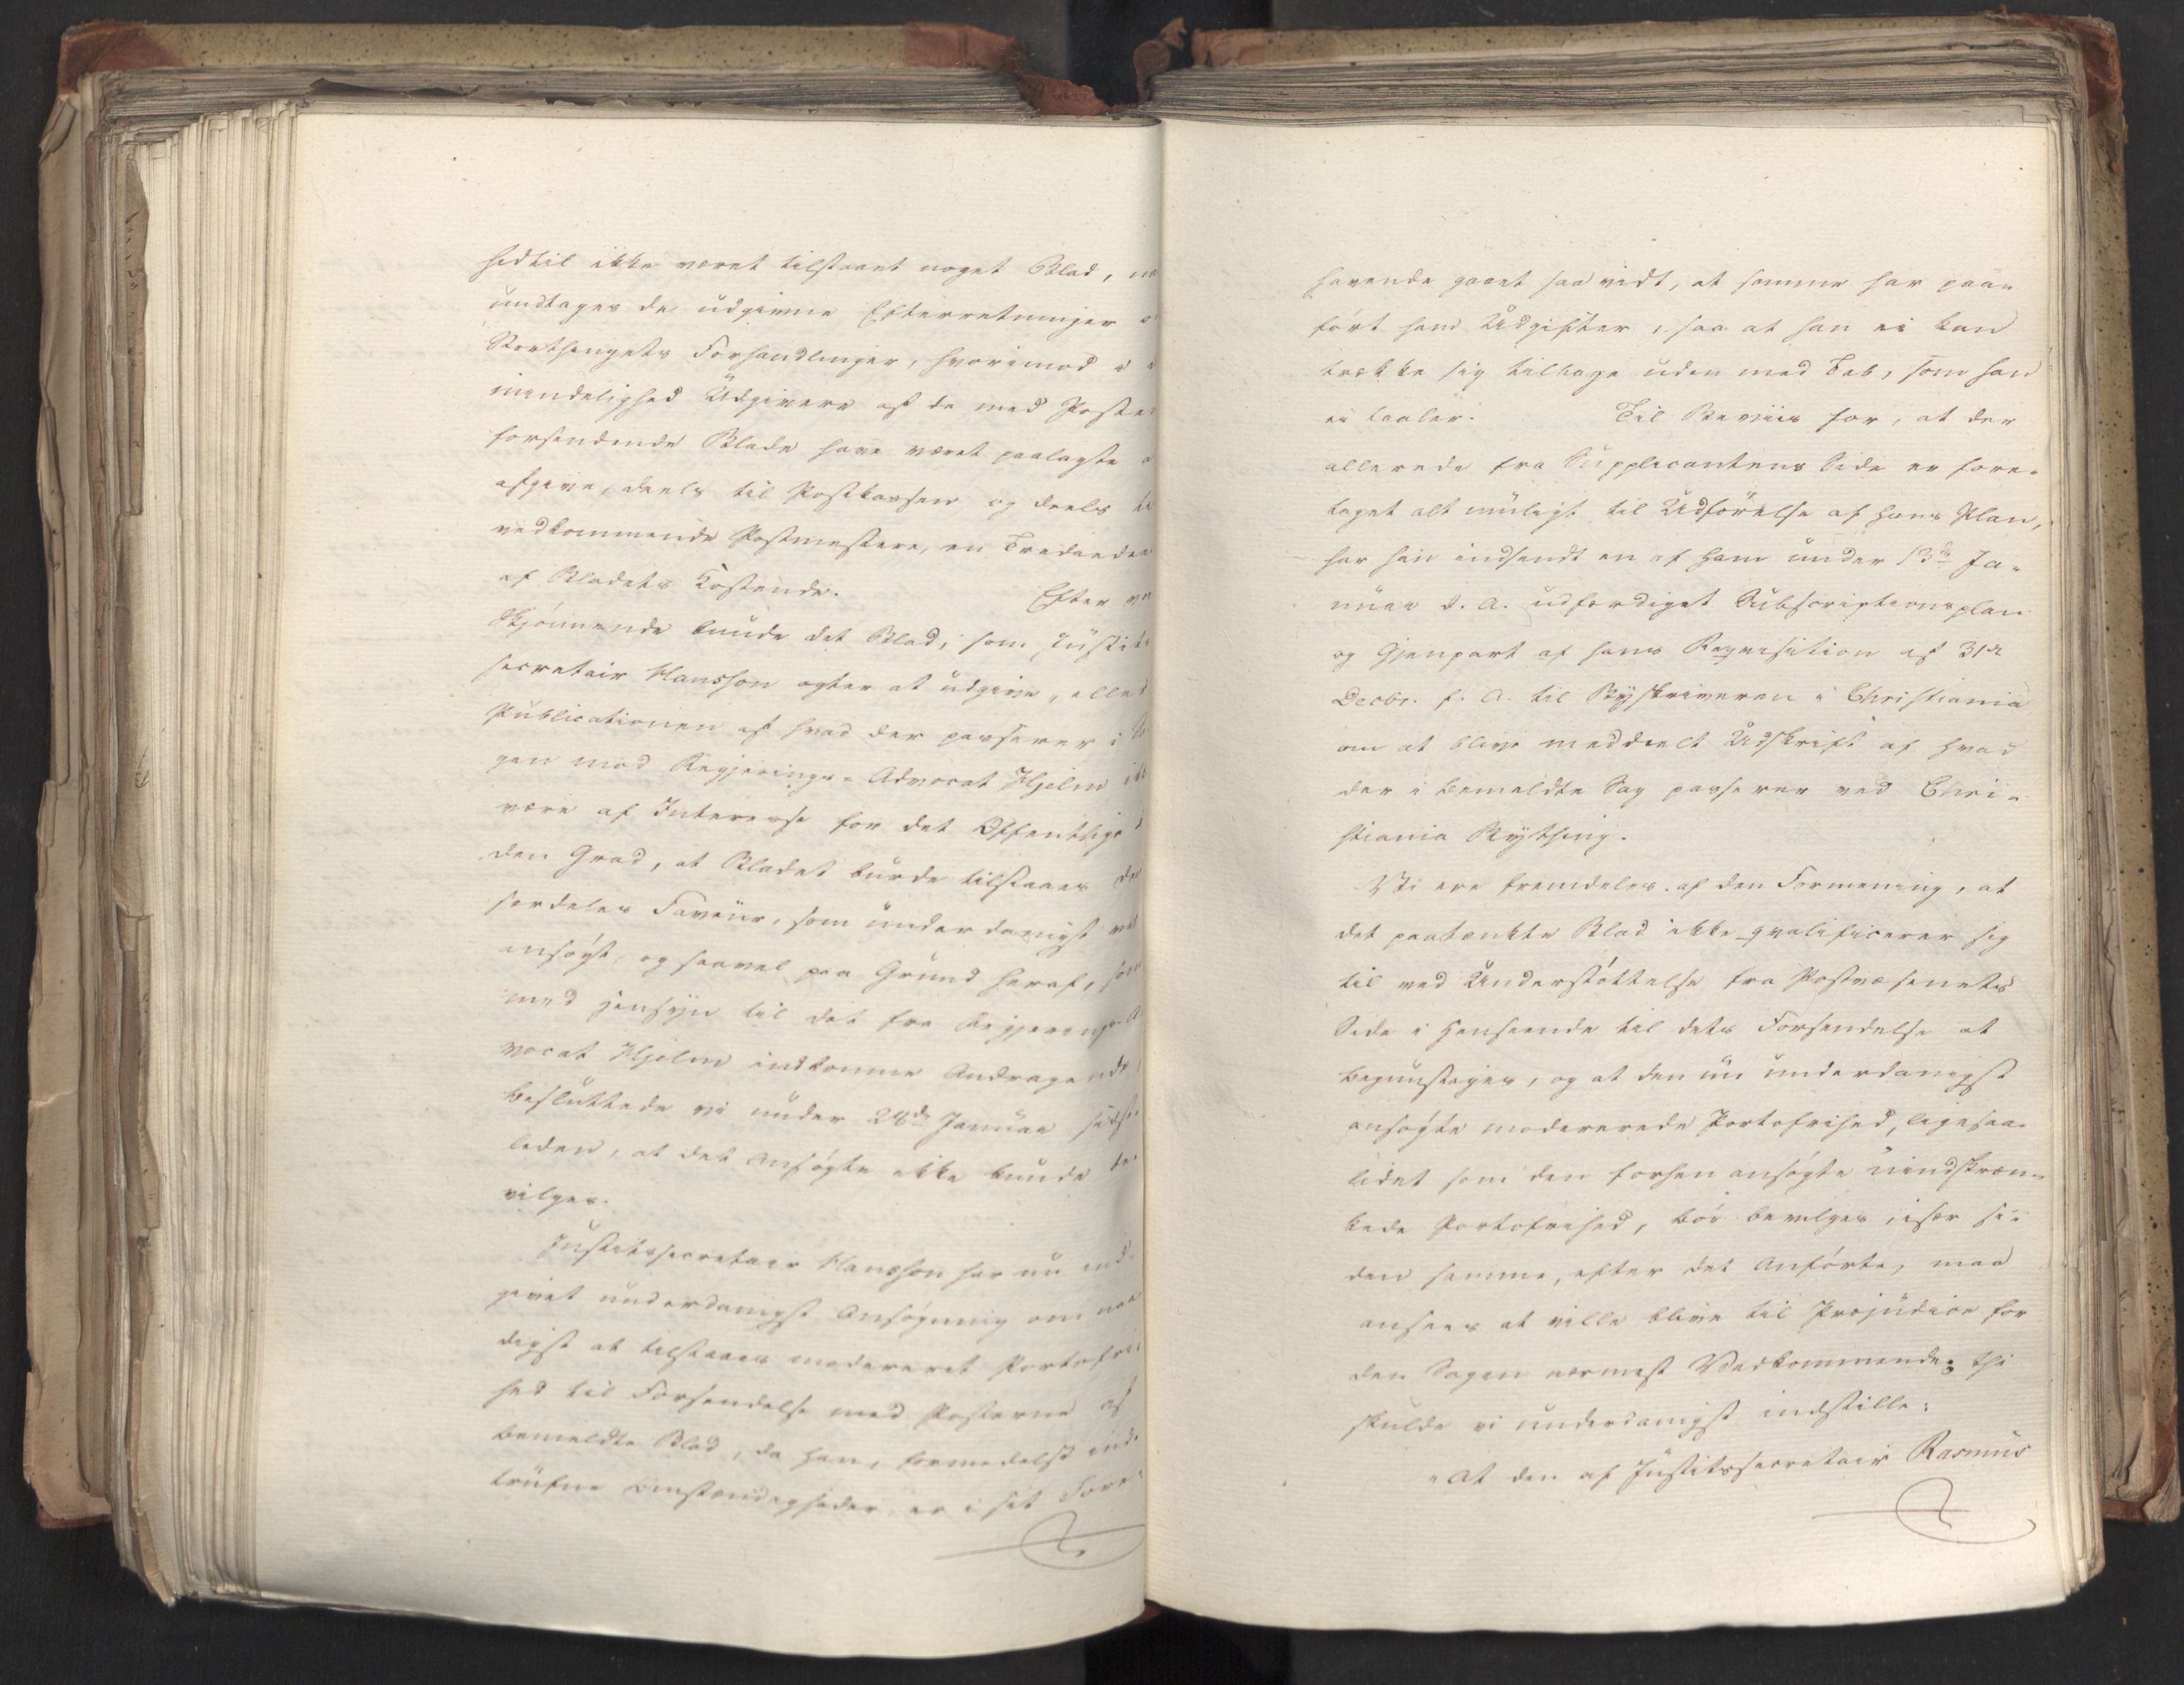 hidtil ikke været tilstaaet noget Blad, naar
undtages de udgivne Efterretninger o
Storthingets Forhandlinger, hvorimod i
mindelighed Udgivere af de med Posten
forsendende Blade have været paalagte a
afgive, deels til Postkassen og deels ti
vedkommende Postmestere, en Trediedeel
af Bladets Kostende. Efter vor
Skjönnende kunde det Blad, som Justits-
secretair Hansson agter at udgive, eller
Publicationen af hvad der passerer i Sa
gen mod Regjerings-Advocat Hjelm ikke
være af Interesse for det Offentlige i
den Grad, at Bladet burde tilstaaes den
særdeles Faveur, som underdanigst var
ansögt, og saavel paa Grund heraf, som
med Hensyn til det fra Regjerings-Ad
vocat Hjelm indkomne Andragende,
besluttede vi under 28de Januar sidst-
leden, at det Ansögte ikke kunde be-
vilges.
Justitssecretair Hansson har nu ind-
givet underdanigst Ansögning om naa
digst at tilstaaes modereret Portofri-
hed til Forsendelse med Posterne af
bemeldte Blad, da han, formedelst ind-
trufne Omstændigheder, er i sit Fore-
havende gaaet saa vidt, at samme har paa-
fört ham Udgifter, saa at han ei kan
trække sig tilbage uden med Tab, som han
ei taaler. Til Beviis for, at der
allerede fra Supplicantens Side er fore-
taget alt muligt til Udförelse af hans Plan,
har han indsendt en af ham under 13de Ja-
nuar d. A. udfærdiget Subscriptionsplan
og Gjenpart af hans Requisition af 31te
Decbr. f. A. til Byskriveren i Christiania
om at blive meddeelt Udskrift af hvad
der i bemeldte Sag passerer ved Chri-
stiania Bything.
Vi ere fremdeles af den Formening, at
det paatænkte Blad ikke qvalificerer sig
til ved Understöttelse fra Postvæsenets
Side i Henseende til dets Forsendelse at
begunstiges, og at den nu underdanigst
ansögte modererede Portofrihed, ligesaa-
lidet som den forhen ansögte uindskræn-
kede Portofrihed, bör bevilges, især si-
den samme, efter det Anförte, maa
ansees at ville blive til Præjudice for
den Sagen nærmest Vedkommende; thi
skulde vi underdanigst indstille:
"At den af Justitssecretair Rasmus